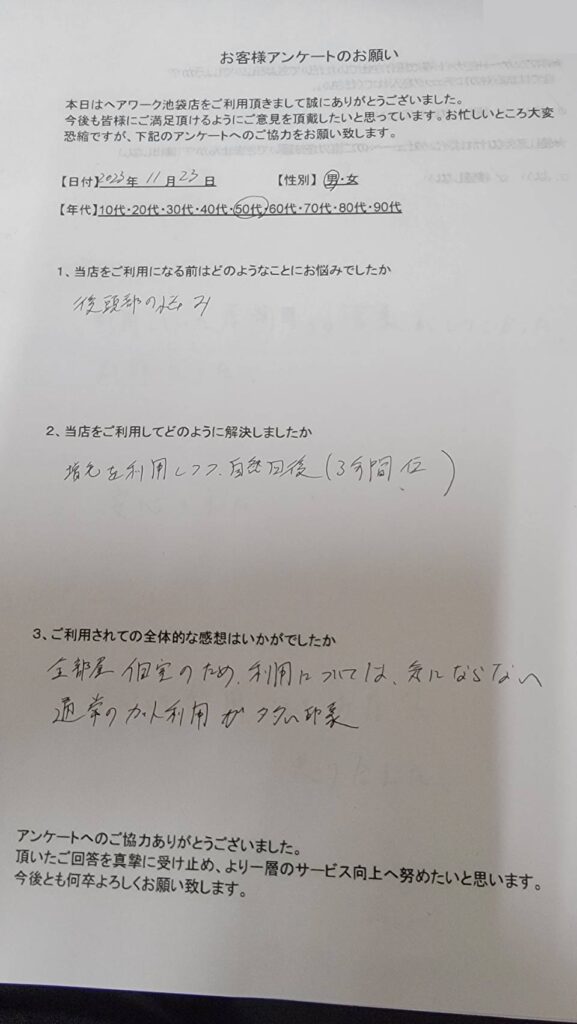 お客様アンケートのお願い
本日はヘアワーク池袋店をご利用頂きまして誠にありがとうございました。
今後も皆様にご満足頂けるようにご意見を頂戴したいと思っています。お忙しいところ大変
恐縮ですが、下記のアンケートへのご協力をお願い致します。
【日付】2023年 11月23日 【性別】男・女
【年代】10代・20代・30代・40代・50代・60代・70代・80代・90代
1、当店をご利用になる前はどのようなことにお悩みでしたか
後頭部の悩み
2、当店をご利用してどのように解決しましたか
増毛を利用しつつ、自然回後(3年間位)
3、ご利用されての全体的な感想はいかがでしたか
全部屋個室のため、利用については、気にならない
通常のカット利用が多い印象
アンケートへのご協力ありがとうございました。
頂いたご回答を真摯に受け止め、より一層のサービス向上へ努めたいと思います。
今後とも何卒よろしくお願い致します。